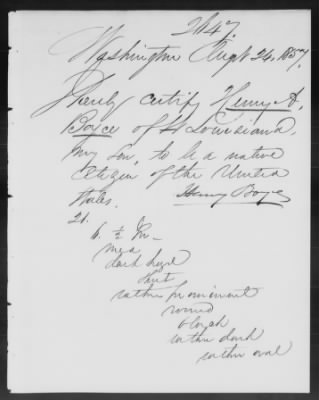 2847.
Washington Augt 24, 1857.
I hereby certify Henry A.
Boyce of Louisiana,
my son, to be a native
Citizen of the United
States. Henry Boyce
21.
6. ½ In—
med
dark hazel
short
rather prominent
round
blonde
rather dark
rather oval